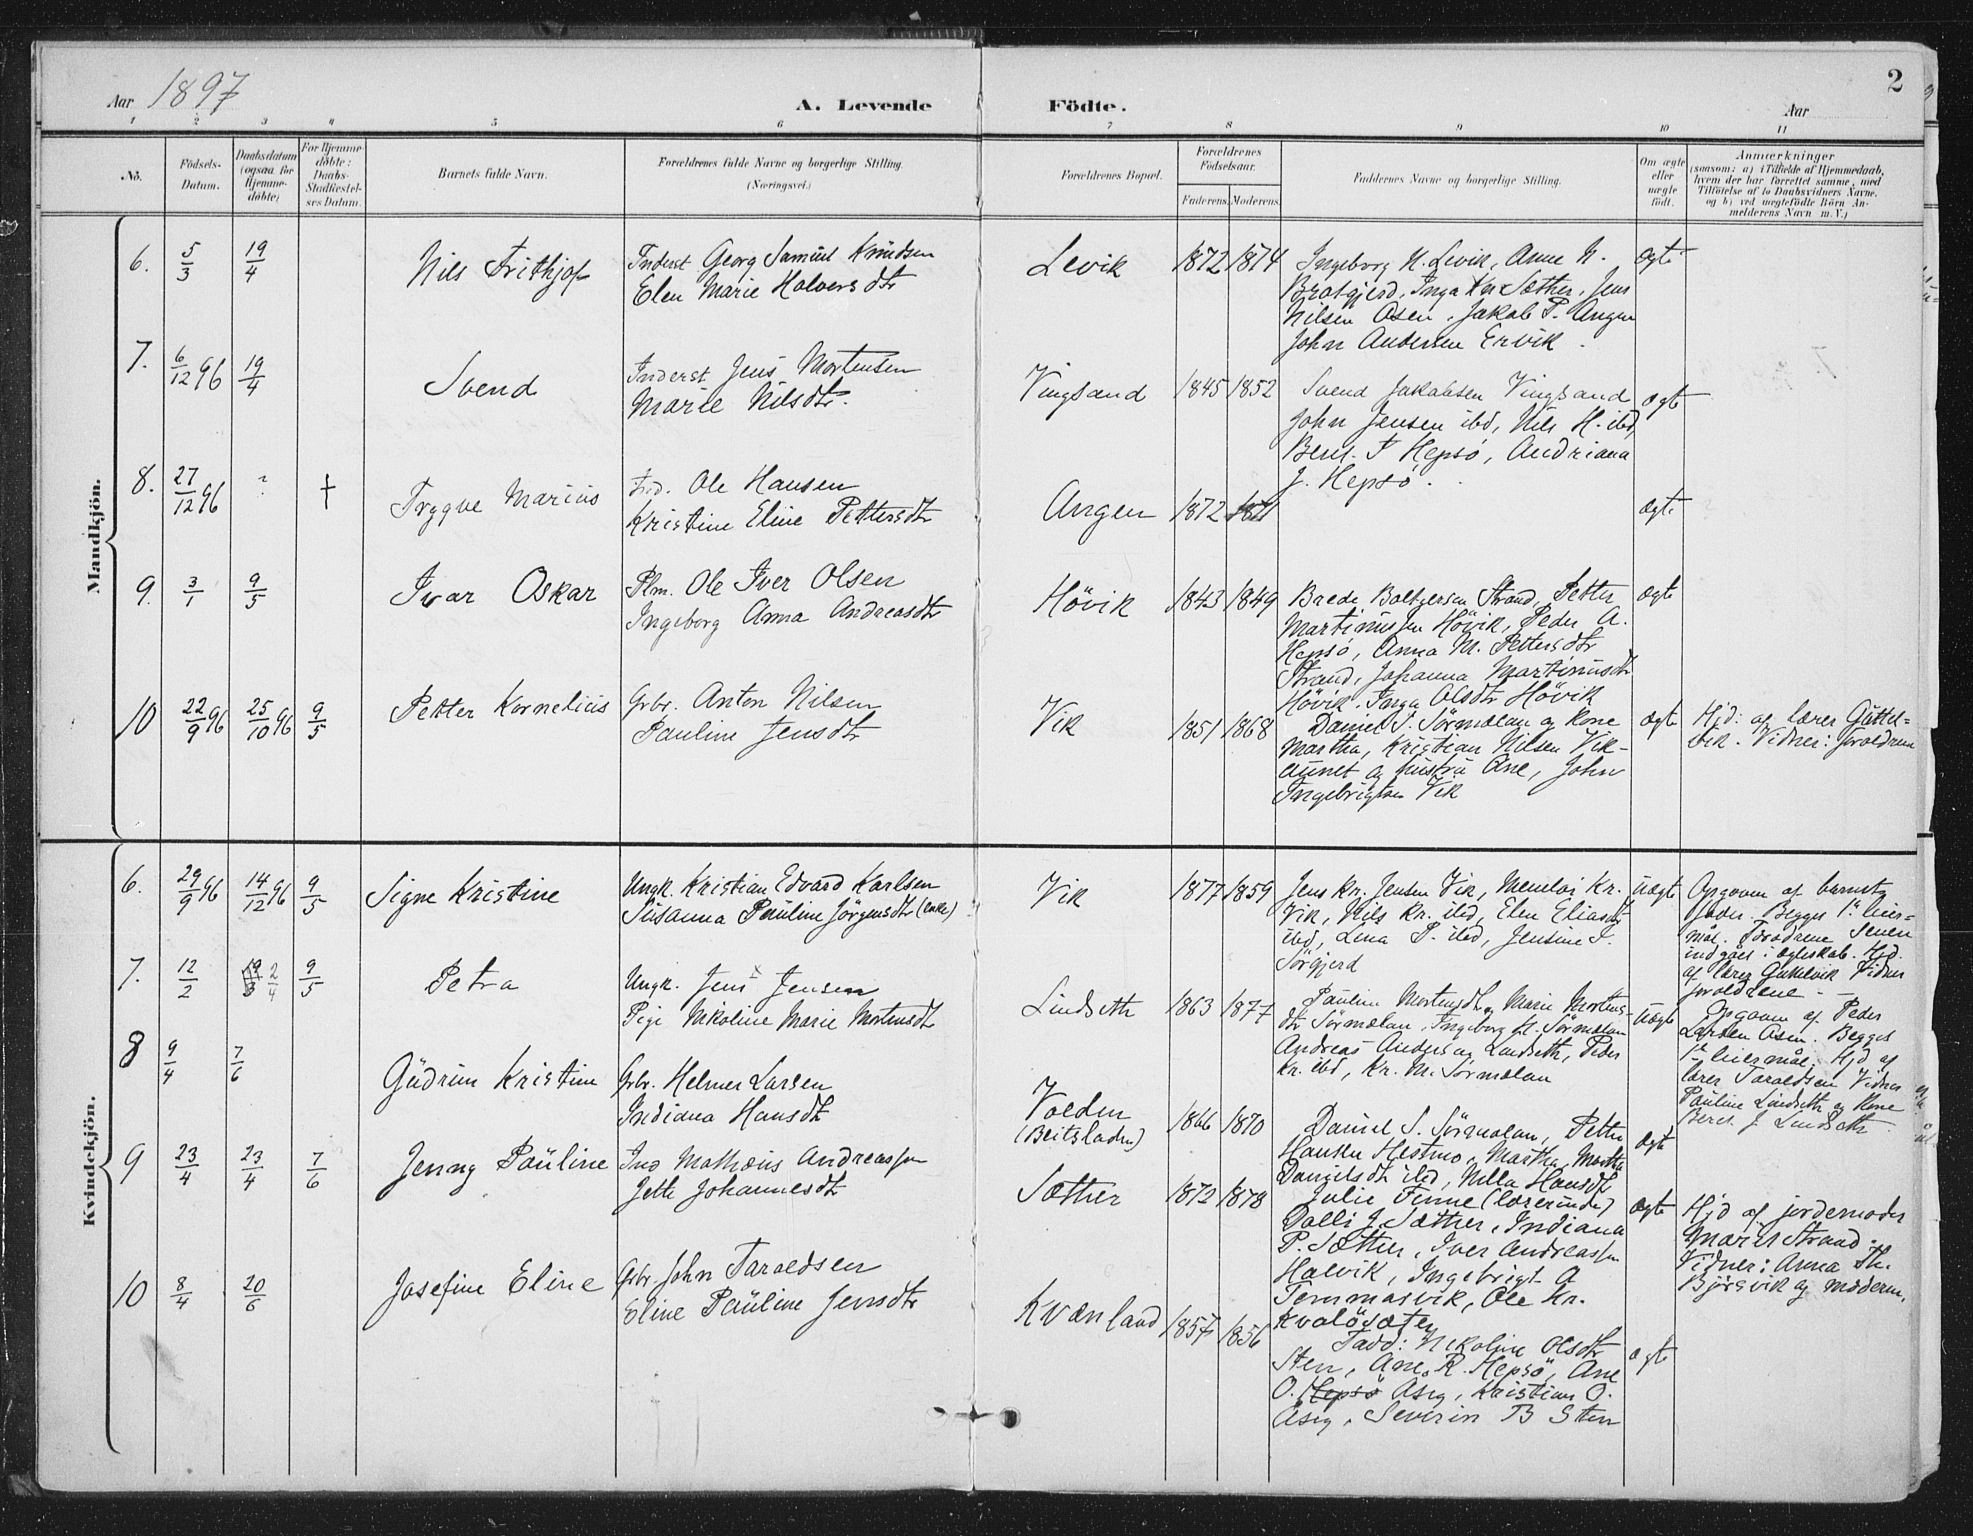 Aar 1897
A. Levende Födte.
Aar
2
1 2 3 4 5 6 7 8 9 10 11
No.
Födsels-Datum.
Daabsdatum (ogsaa for Hjemmedöbte)
For Hjemmedöbte: Daabs-Stadfæstelses Datum.
Barnets fulde Navn.
Forældrenes fulde Navne og borgerlige Stilling. (Næringsvei.)
Forældrenes Bopæl.
Forældrenes Födselsaar.
Faderens. Moderens.
Faddernes Navne og borgerlige Stilling.
Om ægte eller uægte födt.
Anmærkninger
(saasom: a) i Tilfælde af Hjemmedaab,
hvem der har forrettet samme, med
Tilföielse af to Daabsvidners Navne,
og b) ved uægtefödte Börn An-
melderens Navn m. V.)
Mandkjön.
6. 5/3 19/4 Nils Frithjof
Inderst Georg Samuel Knudsen
Elen Marie Halversdtr
Levik 1872 1874
Ingeborg N. Levik, Anne N.
Bratgjerd, Inga Kr. Sæther, Jens
Nilsen Osen, Jakob P. Angen
John Andersen Ervik.
ægte
7. 6/12 96 19/4 Svend
Inderst Jens Mortensen
Marie Nilsdtr.
Vingsand 1845 1852
Svend Jakobsen Vingsand
John Jensen ibd, Nils H. ibd,
Bert. J Hepsö, Andriana
J. Hepsö.
ægte
8. 27/12 96 ? † Trygve Marius
Ind. Ole Hansen
Kristine Eline Pettersdtr
Angen 1872 1871
ægte
9. 3/1 9/5 Ivar Oskar
Plm. Ole Iver Olsen
Ingeborg Anna Andreasdtr
Hövik 1843 1849
Brede Boltgersen Strand, Petter
Martinussen Hövik, Peder A.
Hepsö, Anna M. Pettersdtr
Strand, Johanna Martinusdtr
Hövik, Inga Olsdtr Hövik
ægte
10 22/9 96 25/10 96 9/5 Petter Kornelius
Grbr. Anton Nilsen
Pauline Jensdtr
Vik 1851 1868
Daniel S. Sörmælan og kone
Martha, Kristian Nilsen Vik-
aunet og hustru Ane, John
Ingebrigtsen Vik
ægte
Hjd: af lærer Guttel-
vik. Vidner: forældrene
Kvindekjön.
6. 29/9 96 14/12 96 9/5 Signe Kristine
Ungk. Kristian Edvard Karlsen
Susanna Pauline Jörgensdtr (enke)
Vik 1877 1859
Jens Kr. Jensen Vik, Menelai Kr.
Vik, Nils Kr. ibd, Elen Eliasdtr
ibd, Lina P. ibd, Jensine P.
Sörgjerd
Uægte
Opgaven af barnets
fader. Begges 1ste leier-
mål. Forældrene senere
indgået i ægteskab. Hjd.
af lærer Guttelvik Vidner
forældrene —
7. 12/2 2/4 9/5 Petra
Ungk. Jens Jensen
Pige Nikoline Marie Mortensdtr
Lindseth 1863 1877
Pauline Mortensdtr, Marie Mortens-
dtr Sörmælan, Ingeborg M. Sörmælan
Andreas Anders og Lindseth, Peder
Kr. ibd, Kr. M. Sörmælan
Uægte
Opgaven af Peder
Larsen Osen. Begges
1ste leiermål. Hjd af
lærer Taraldsen Vidner
Pauline Lindseth og kone
Berel. J Lindseth
8 9/4 7/6 Gudrun Kristine
Grbr. Helmer Larsen
Indiana Hansdtr
Volden
(Beitsladen) 1866 1870
Daniel S. Sörmælan, Petter
Hansen Hestmo, Martha Martha
Danielsdtr ibd, Nilla Hansdtr
ægte
9 23/4 23/4 7/6 Jenny Pauline
Ind Mathæus Andreassen
Jette Johannesdtr
Sæther 1872 1878
Julie Finne (lærerinde)
Dolli J. Sæther, Indiana
P. Sæther, Iver Andreassen
Halvik, Ingebrigt A
Temmasvik, Ole Kr.
Kvalösæter
ægte
Hjd af jordemoder
Marit Strand.
Vidner: Anna Th.
Björsvik og moderen.
10 8/4 20/6 Josefine Eline
Grbr. John Taraldsen
Eline Pauline Jensdtr
Kvænland 1857 1856
Fadd: Nikoline Olsdtr
Sten, Ane R. Hepsö, Ane
O. Hepsö Åseg, Kristian O.
Åseg, Severin B Sten
ægte